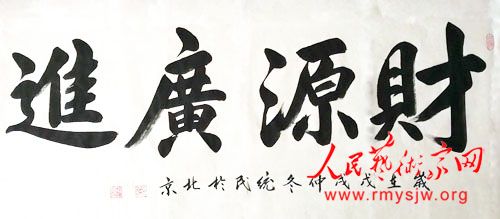 財源廣進
歲在戊戌仲冬統民於北京
人民藝術家网
www.rmysjw.org